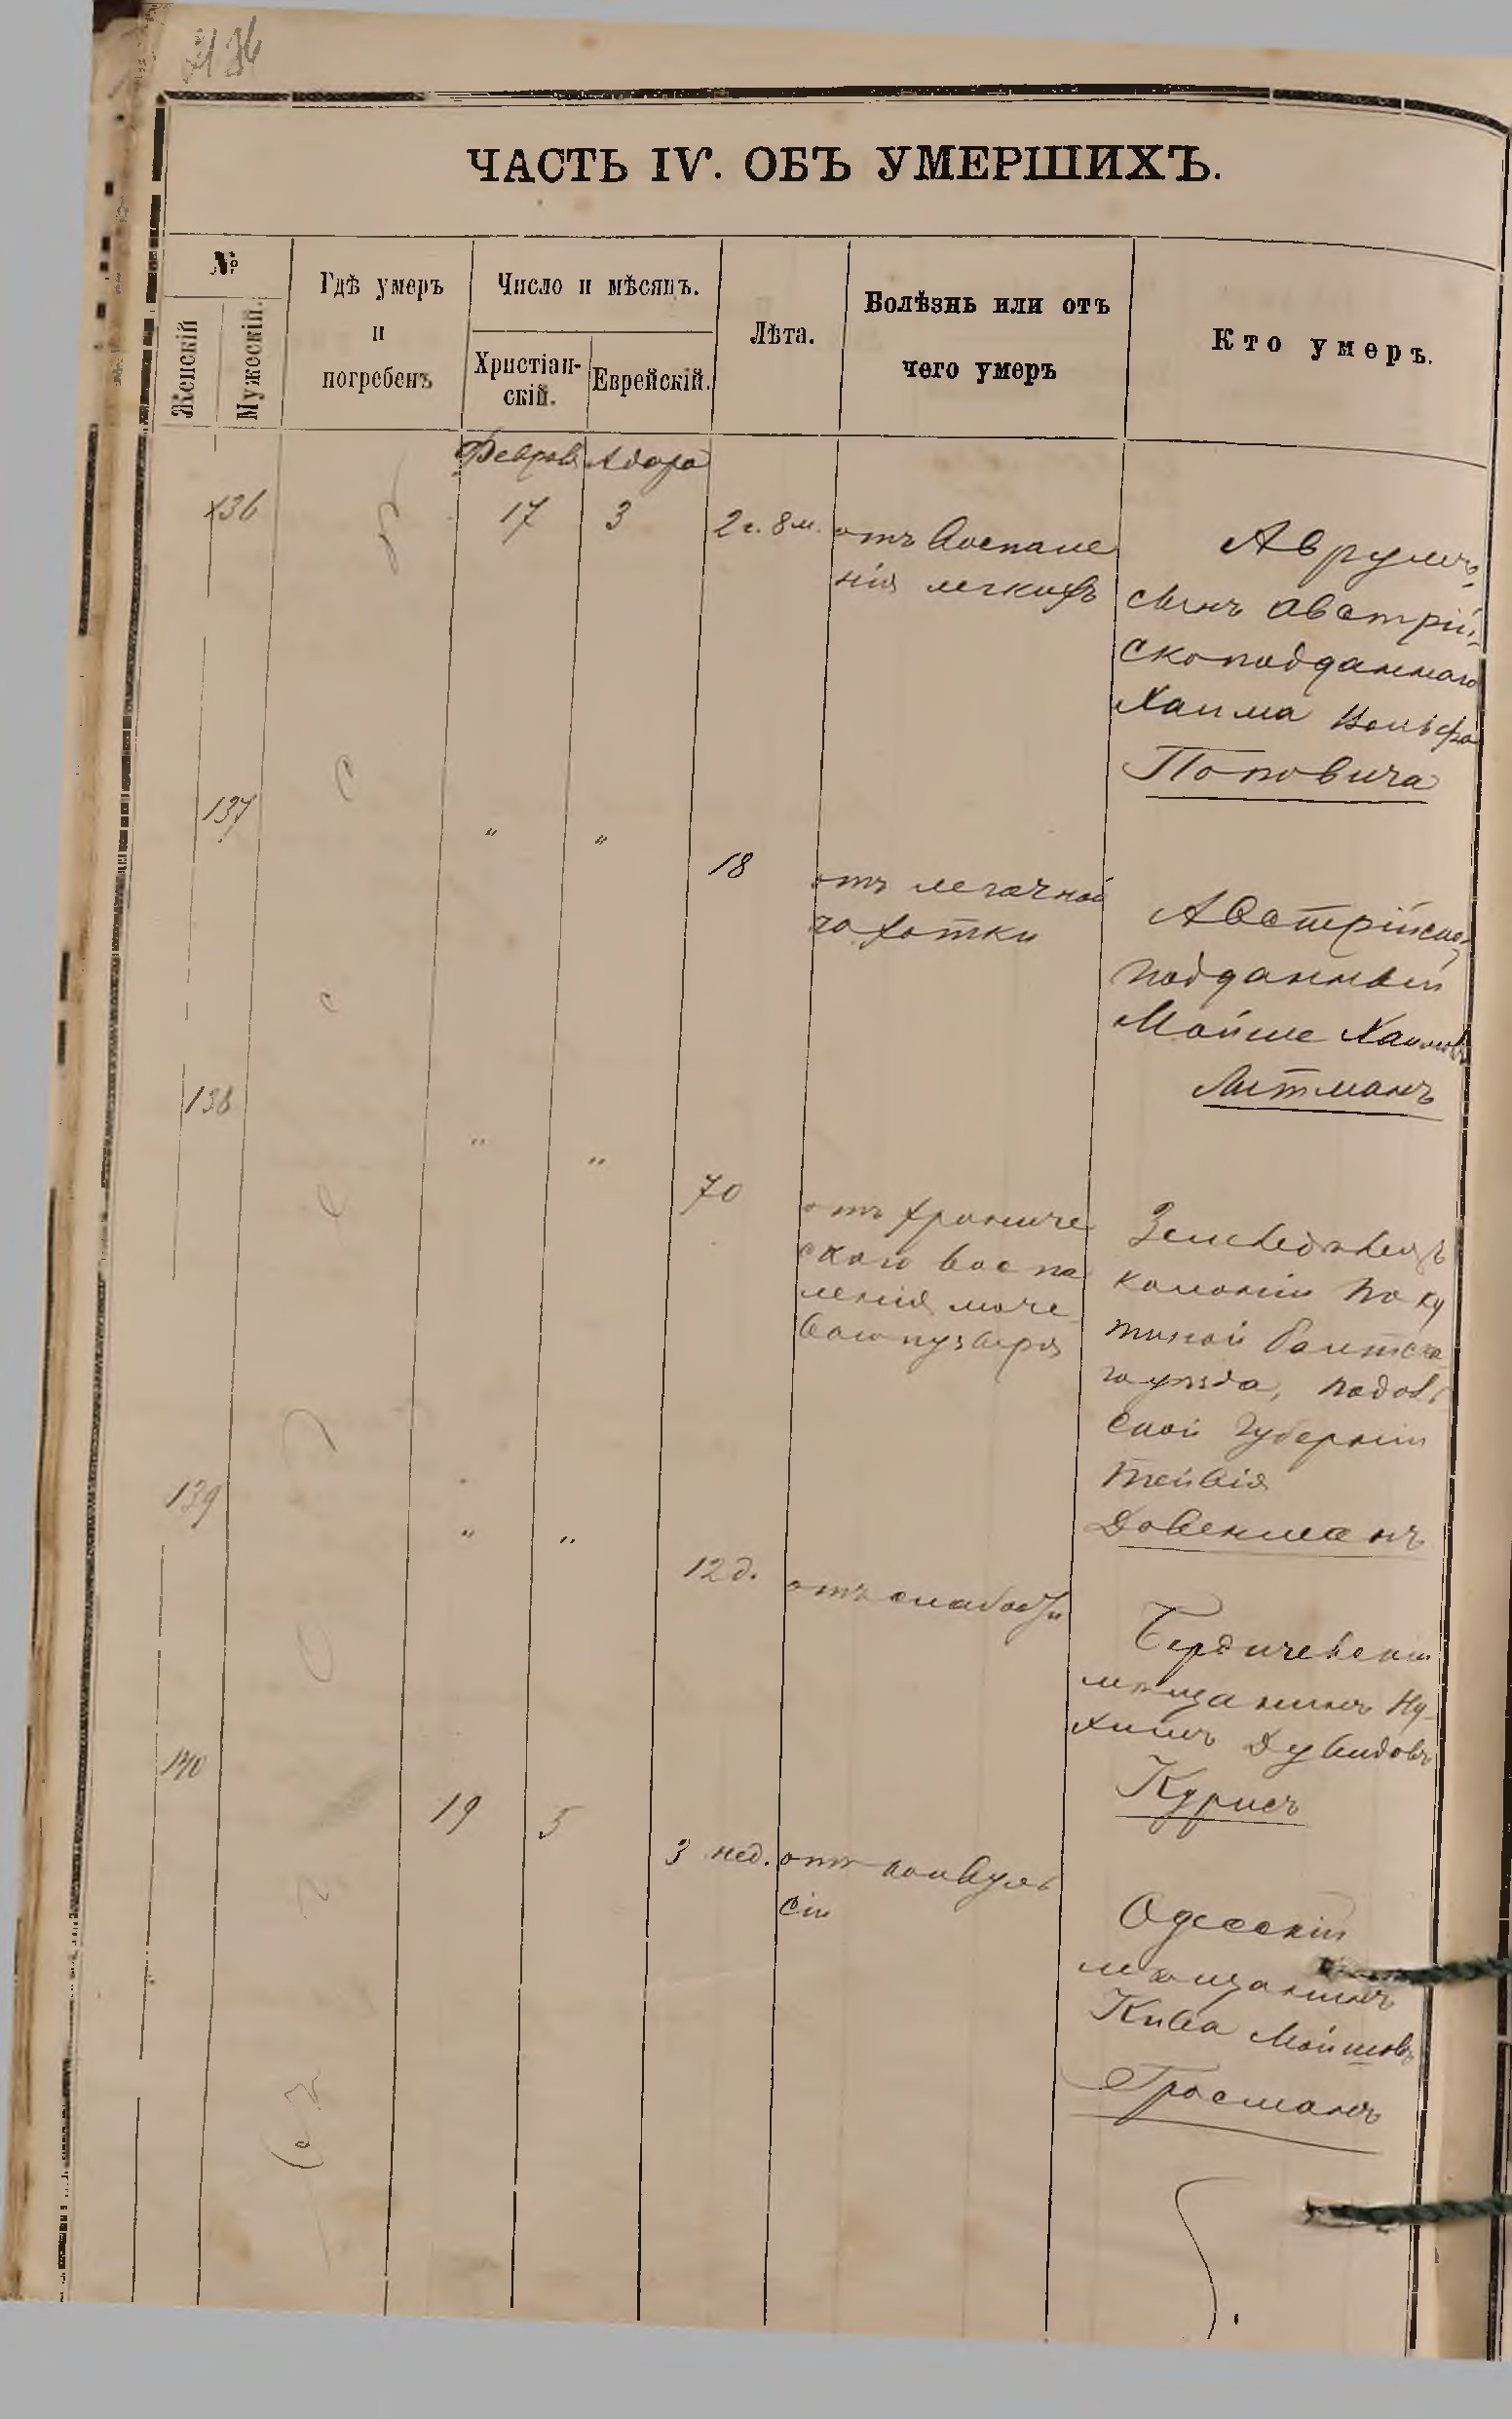 ЧАСТЬ IV. ОБЪ УМЕРШИХЪ.
№
Женскій
Мужескій.
Гдѣ умеръ
и
погребенъ
Число и мѣсяцъ.
Христіан-
скій.
Еврейскій.
Лѣта.
Болѣзнь или отъ
чего умеръ
Кто умеръ.
Адара
136
17
3
2 г. 8 м.
отъ воспале
нія легкихъ
Аврумъ,
сынъ австрій-
скоподданнаго
Хаима Вольфа
Поповича
137
"
"
18
отъ легочной
чахотки
Австрійско
подданный
Мойше
Литманъ
138
"
"
70
отъ хрониче
скаго воспа
ленія моче
ваго пузыря
Земледѣлецъ
колоніи
Балтска
го уѣзда, Подоль
ской губерніи
Довенманъ
139
"
"
12 д.
отъ слабости
Бердичевскій
мѣщанинъ Ну-
химъ Дувидовъ
Курисъ
140
19
5
3 нед.
отъ конвуль
сіи
Одесскій
мѣщанинъ
Кива Мойшовъ
Гросманъ